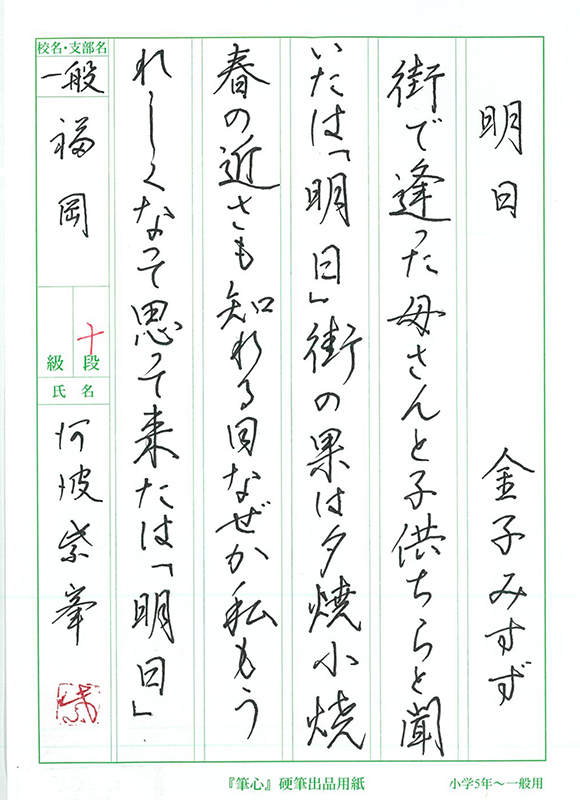 明日
金子みすゞ
街で逢った母さんと子供ちらと聞
いたは「明日」街の果は夕焼小焼
春の近さも知れる日なぜか私もう
れしくなって思って来たは「明日」
校名・支部名
一般
福岡
十
段
級
氏名
阿波紫峯
『筆心』硬筆出品用紙
小学5年〜一般用